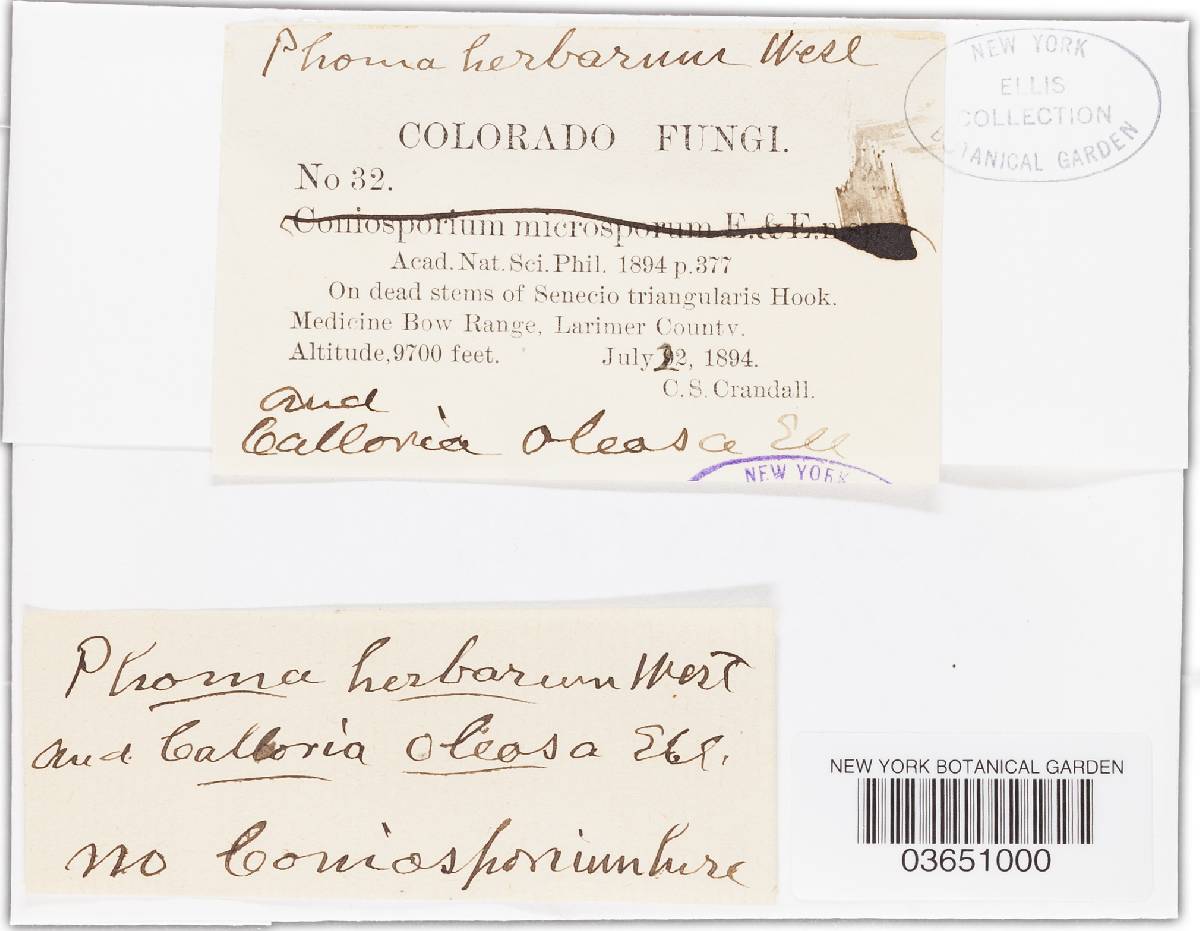 Phoma herbarum West
NEW YORK
ELLIS
COLLECTION
BOTANICAL GARDEN
COLORADO FUNGI.
No 32.
Coniosporium microsporum E. & E. n.sp.
Acad. Nat. Sci. Phil. 1894 p.377
On dead stems of Senecio triangularis Hook.
Medicine Bow Range, Larimer County.
Altitude, 9700 feet. July 22, 1894.
C. S. Crandall.
and
Calloria oleosa Ell
NEW YORK
Phoma herbarum West
and Calloria oleosa Ell.
no Coniosporium here
NEW YORK BOTANICAL GARDEN
03651000